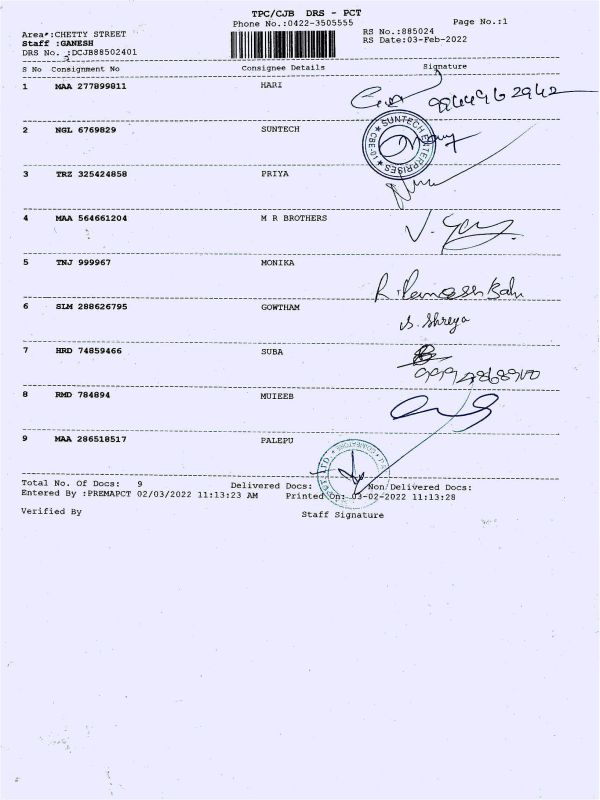 TPC/CJB DRS - PCT
Phone No.:0422-3505555
Page No.:1
Area*:CHETTY STREET
Staff :GANESH
DRS No. :DCJB88502401
RS No.:885024
RS Date:03-Feb-2022
S No Consignment No Consignee Details Signature
1 MAA 277899811 HARI
2 NGL 6769829 SUNTECH
SUNTECH ENTERPRISES ★ CBE-01 ★
3 TRZ 325424858 PRIYA
4 MAA 564661204 M R BROTHERS
5 TNJ 999967 MONIKA
R. Ramesh Babu
6 SLM 288626795 GOWTHAM
S. Shreya
7 HRD 74859466 SUBA
8 RMD 784894 MUIEEB
9 MAA 286518517 PALEPU
Total No. Of Docs: 9 Delivered Docs: Non Delivered Docs:
Entered By :PREMAPCT 02/03/2022 11:13:23 AM Printed On: 03-02-2022 11:13:28
Verified By Staff Signature